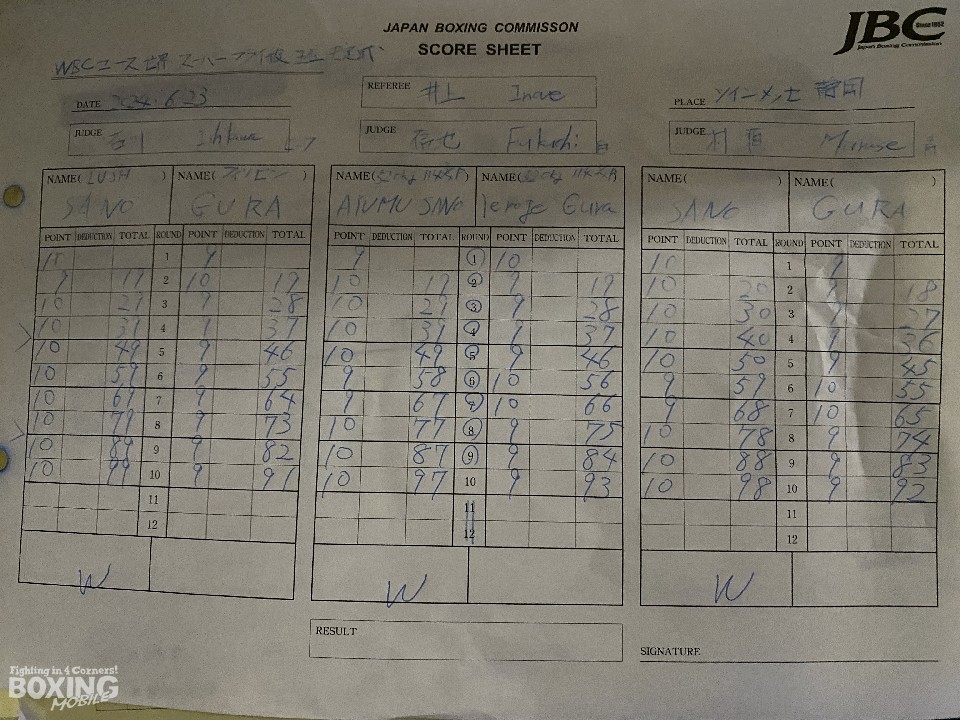 JAPAN BOXING COMMISSON
SCORE SHEET
JBC
Since 1952
Japan Boxing Commission
WBCユース世界 スーパーフライ級 王座決定戦
DATE 2024.6.23
REFEREE 井上 Inoue
PLACE ツインメッセ 静岡
JUDGE 石川 Ishikawa
JUDGE Fukuchi
JUDGE
NAME(LUSH) NAME(フィリピン)
SANO GURA
POINT DEDUCTION TOTAL ROUND POINT DEDUCTION TOTAL
10 1 9
9 19 2 10 19
10 29 3 9 28
10 39 4 9 37
10 49 5 9 46
10 59 6 9 55
10 69 7 9 64
10 79 8 9 73
10 89 9 9 82
10 99 10 9 91
11
12
W
NAME( NAME(
AYUMU SANO Gura
POINT DEDUCTION TOTAL ROUND POINT DEDUCTION TOTAL
9 1 10
10 19 2 9 19
10 29 3 9 28
10 39 4 9 37
10 49 5 9 46
9 58 6 10 56
9 67 7 10 66
10 77 8 9 75
10 87 9 9 84
10 97 10 9 93
11
12
W
NAME( ) NAME( )
SANO GURA
POINT DEDUCTION TOTAL ROUND POINT DEDUCTION TOTAL
10 1 9
10 20 2 9 18
10 30 3 9 27
10 40 4 9 36
10 50 5 9 45
9 59 6 10 55
9 68 7 10 65
10 78 8 9 74
10 88 9 9 83
10 98 10 9 92
11
12
W
RESULT
SIGNATURE
Fighting in 4 Corners!
BOXING
MOBILE